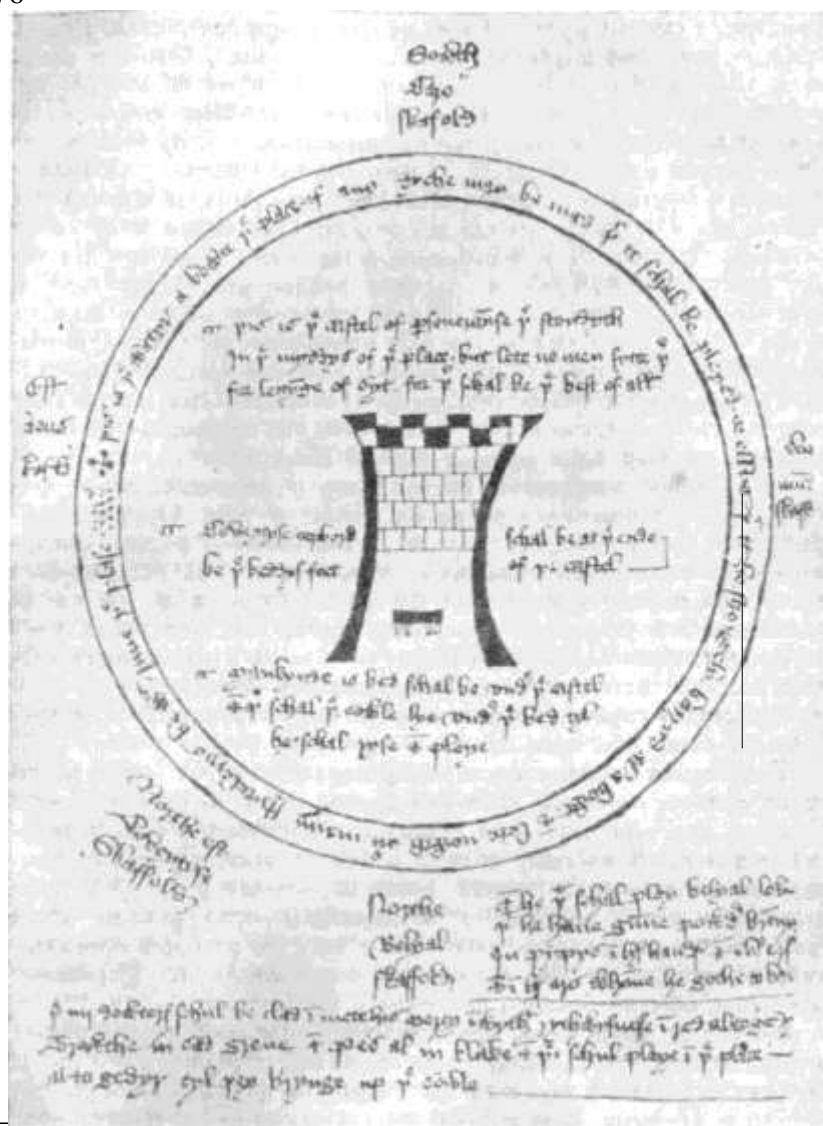 Sowth
Caro
skafold
þis is þe watyr a bowte þe place if any dyche may be mad þer it schal be pleyed or ellys þat it be strongely barryd al a bowt & lete nowth ouer many stytelerys be wyth inne þe plase
þis is þe castel of perseueraunse þt stondyth
In þe myddys of þe place but lete no men sytte þer
for lettynge of syt for þer schal be þe best of all
Est
deus
skafold
Coveytyse copbord schal be at þe ende
be þe beddys feet of þe castel
Mankynde is bed schal be vndyr þe castel
& þer schal þe sowle lye vndyr þe bed tyl
he schal ryse & pleye
Northe est
Coveytyse
Skaffold
Northe
Belyal
skaffold
& he þt schal pley belyal loke
þt he haue gunne powdyr
In pypys in hys handys & in hys erys
& in hys ars whanne he gothe to
þe iiij dowterys schul be clad in mentelys mercy in wyth rythwysnesse in red al togedyr
Trewthe in sad grene & pes al in blake & þei schul pleye in þe place
al to gedyr tyl þey brynge up þe sowle